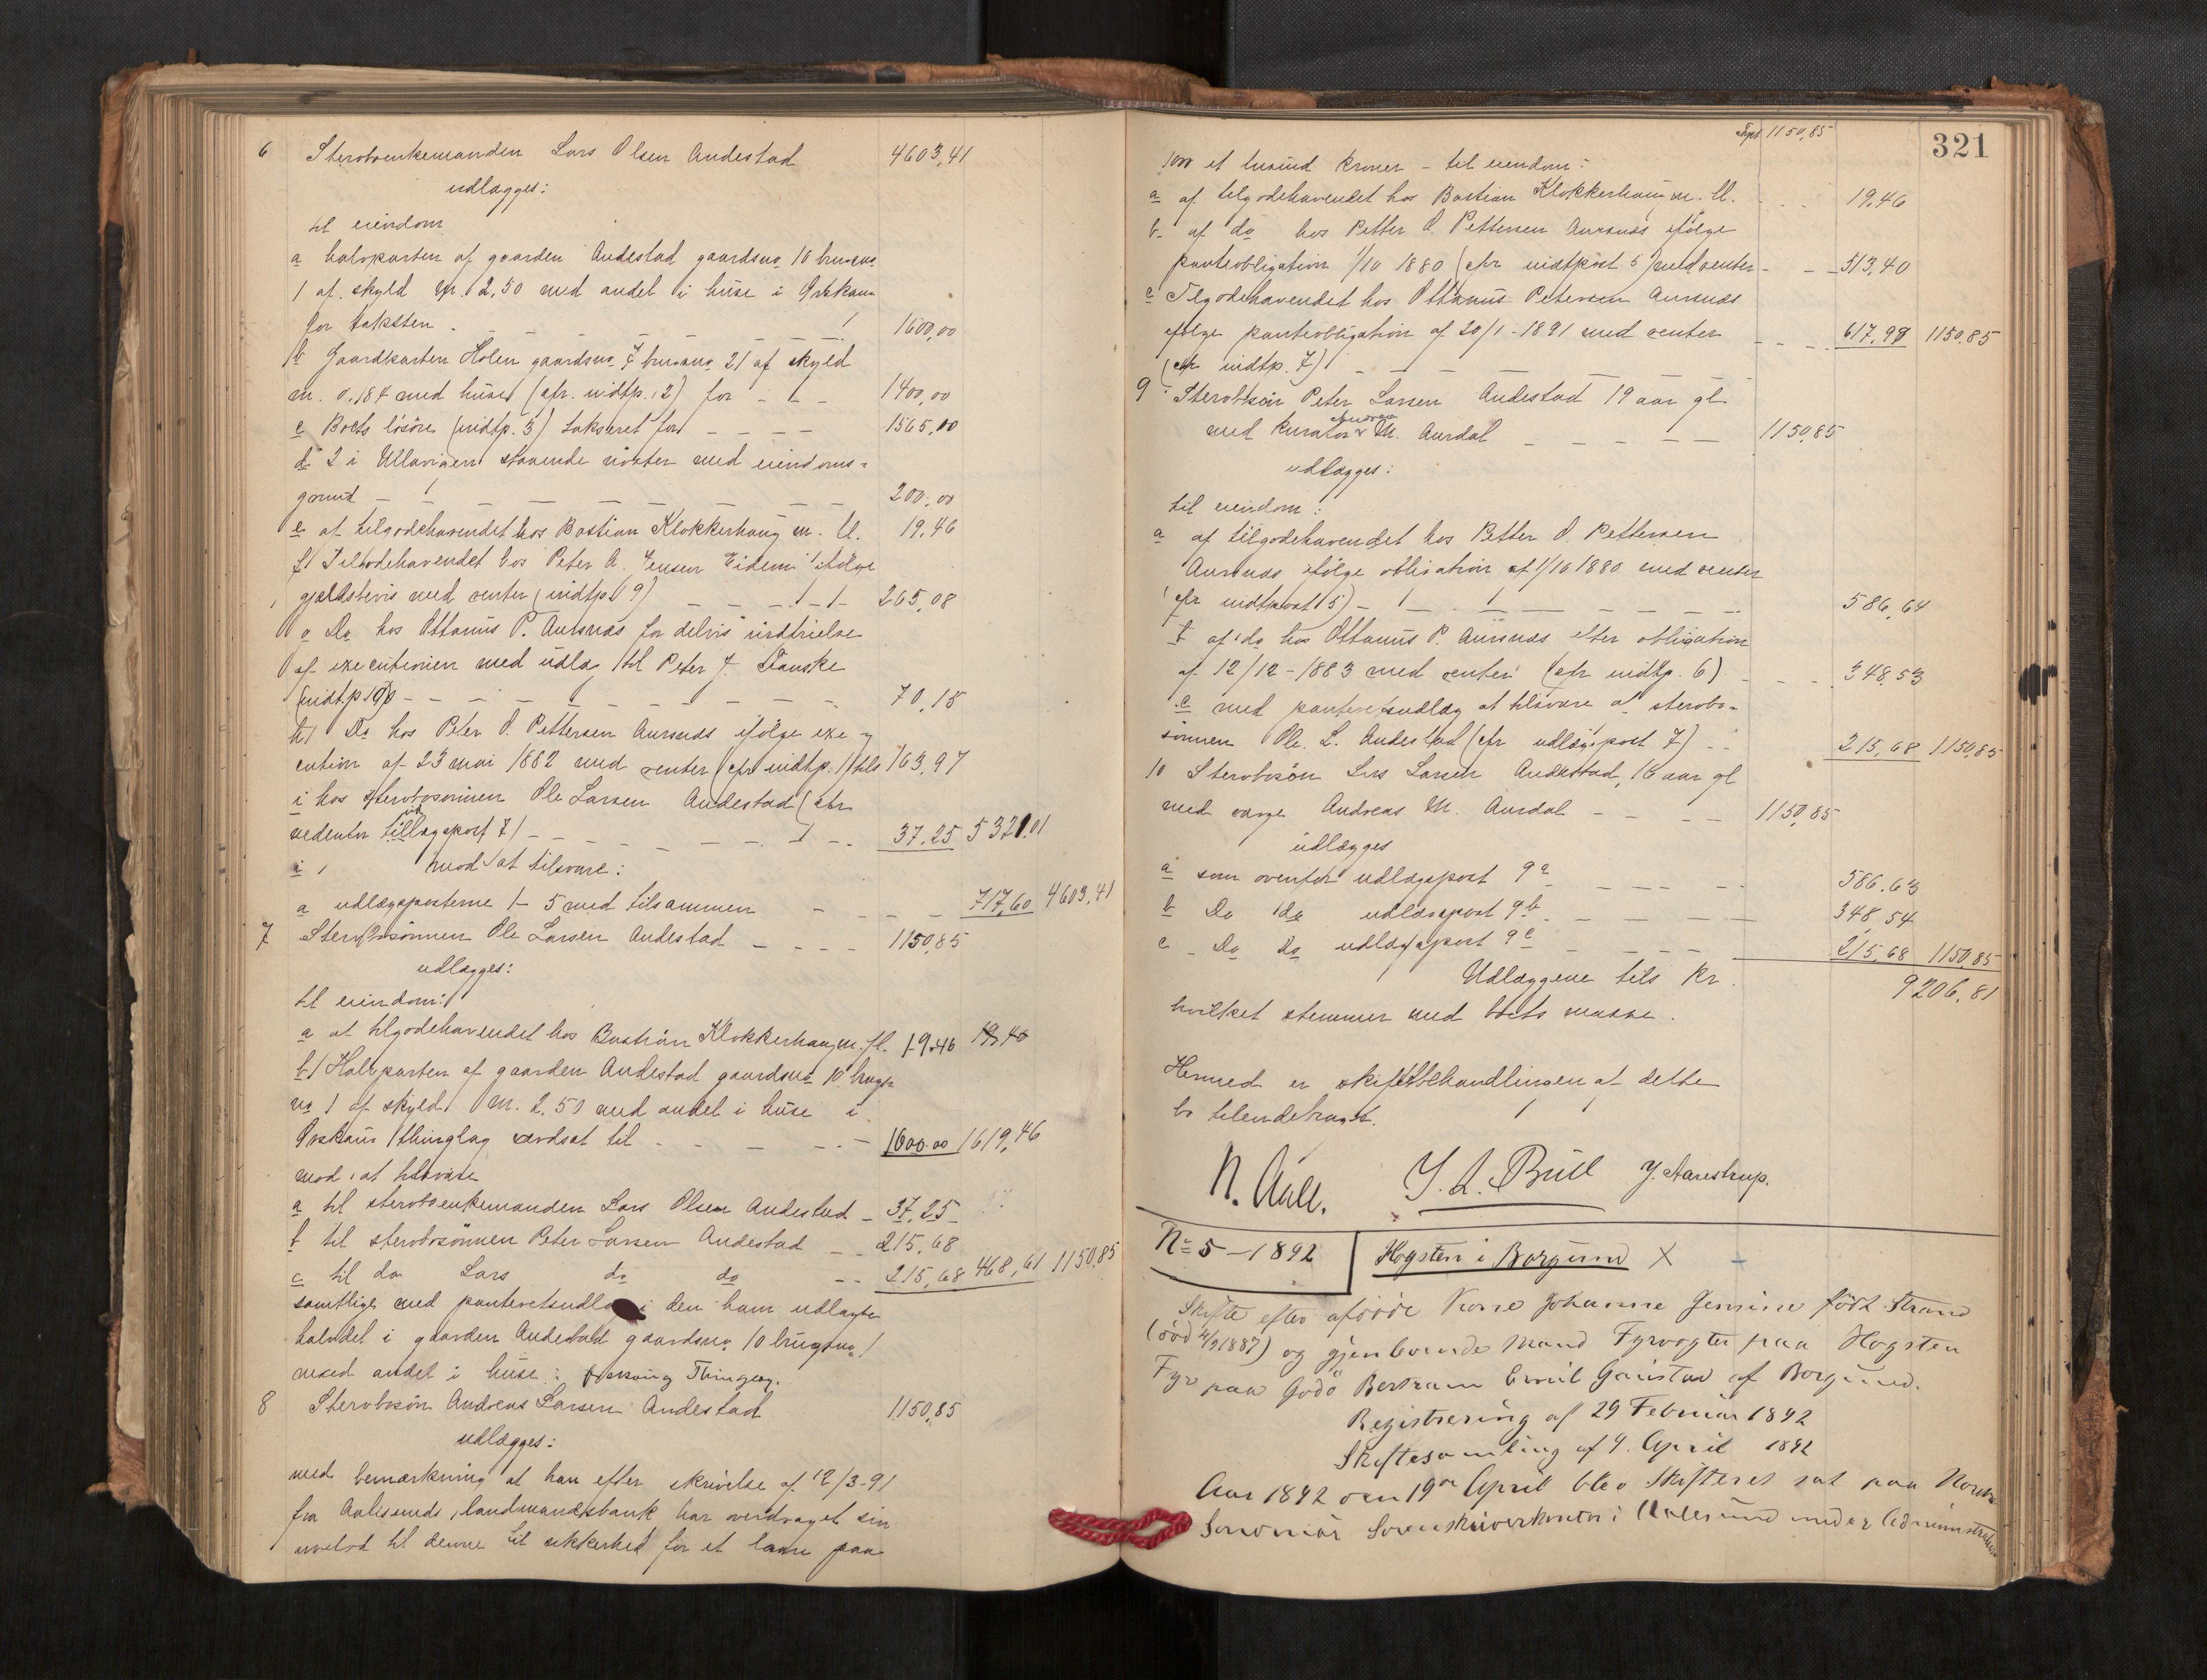 6 Sterboenkemanden Lars Olsen Andestad 4603,41
udlægges:
til eiendom
a halvparten af gaarden Andestad gaardsno. 10 brugsno.
1 af skyld M. 2,50 med andel i huse i Ørskaug
for taksten 1600,00
b Gaardparten Holen gaardsno. 7 brugsno. 21 af skyld
m. 0.184 med huse (cfr. indtp. 2) for 1400,00
c Boets løsøre (indtp. 3) takseret for 1565,10
d 2 i Ullavigen staaende nøster med eiendoms-
grund 200,00
e af tilgodehavendet hos Bastian Klokkerhaug m. fl. 19,46
f Tilgodehavendet hos Peter A. Jensen Eidem ifølge
gjældsbevis med renter (indtp. 9) 265,08
g Do hos Ottanus P. Aursnes for delvis inddrivelse
af executionen med udlæg til Peter J. Fauske
(indtp. 10) 70,15
h Do hos Peter O. Pettersen Aursnes ifølge exe-
cution af 23 mai 1882 med renter (cfr indtp. 1) tils 163,97
i hos sterbosønnen Ole Larsen Andestad (cfr
nedenfor udlægspost 7) 37,25 5321.01
mod at tilsvare:
a udlægsposterne 1-5 med tilsammen 717,60 4603,41
7 Sterbosønnen Ole Larsen Andestad 1150,85
udlægges:
til eiendom:
a af tilgodehavendet hos Bastian Klokkerhaug m. fl. 19.46 19,46
b Halvparten af gaarden Andestad gaardsno 10 brugs-
no 1 af skyld M. 2.50 med andel i huse i
Ørskoug thinglag værdsat til 1600.00 1619,46
mod at tilsvare
a til sterboenkemanden Lars Olsen Andestad 37,25
b til sterbosønnen Peter Larsen Andestad 215,68
c til do Lars do do 215,68 468,61 1150,85
samtlige med panteretsudlæg i den ham udlagte
halvdel i gaarden Andestad gaardsno. 10 brugsno. 1
med andel i huse i Ørskoug Thinglag.
8 Sterbosøn Andreas Larsen Andestad 1150,85
udlægges:
med bemærkning at han efter skrivelse af 12/3-91
fra Aalesunds landmandsbank har overdraget sin
arvelod til denne til sikkerhed for et laan paa
321
Trpt 1150,85
1000 et tusind kroner - til eiendom:
a af tilgodehavendet hos Bastian Klokkerhaug m. fl. 19.46
b af do hos Petter O. Pettersen Aursnes ifølge
panteobligation 1/10 1880 (cfr indtpost 5) med renter 513,40
c Tilgodehavendet hos Ottanus Petersen Aursnes
ifølge panteobligation af 20/1-1891 med renter 617,99 1150.85
(cfr indtp. 7)
9 Sterbosøn Peter Larsen Andestad 19 aar gl
med kurator Andreas M. Aurdal 1150,85
udlægges:
til eiendom:
a af tilgodehavendet hos Petter O. Pettersen
Aursnes ifølge obligation af 1/10 1880 med renter
(cfr indtpost 5) 586,64
b af do hos Ottanus P. Aursnes efter obligation
af 12/12-1883 med renter (cfr indtp. 6) 348,53
c med panteretsudlæg at tilsvare af sterbo-
sønnen Ole L. Andestad (cfr udlægspost 7) 215,68 1150,85
10 Sterbosøn Lars Larsen Andestad, 16 aar gl
med værge Andreas M. Aurdal 1150,85
udlægges
a som ovenfor udlægspost 9a 586.63
b Do do udlægspost 9b 348,54
c Do do udlægspost 9c 215,68 1150,85
Udlæggene tils kr 9206,81
hvilket stemmer med boets masse.
Hermed er skiftebehandlingen af dette
bo tilendebragt.
N. Aall. J. L. Bull J. Aarestrup.
No 5-1892 Hogsten i Borgund X
Skifte efter afdøde Kone Johanne Jensine født Strand
(død 4/9 1887) og gjenlevende Mand Fyrvogter paa Hogsten
Fyr paa Godø Bertram Emil Ganstad af Borgund.
Registrering af 29 Februar 1892
Skiftesamling af 4. April 1892
Aar 1892 den 19de April blev Skifteret sat paa Nordre
Søndmør Sorenskriverkontor i Aalesund under Administration